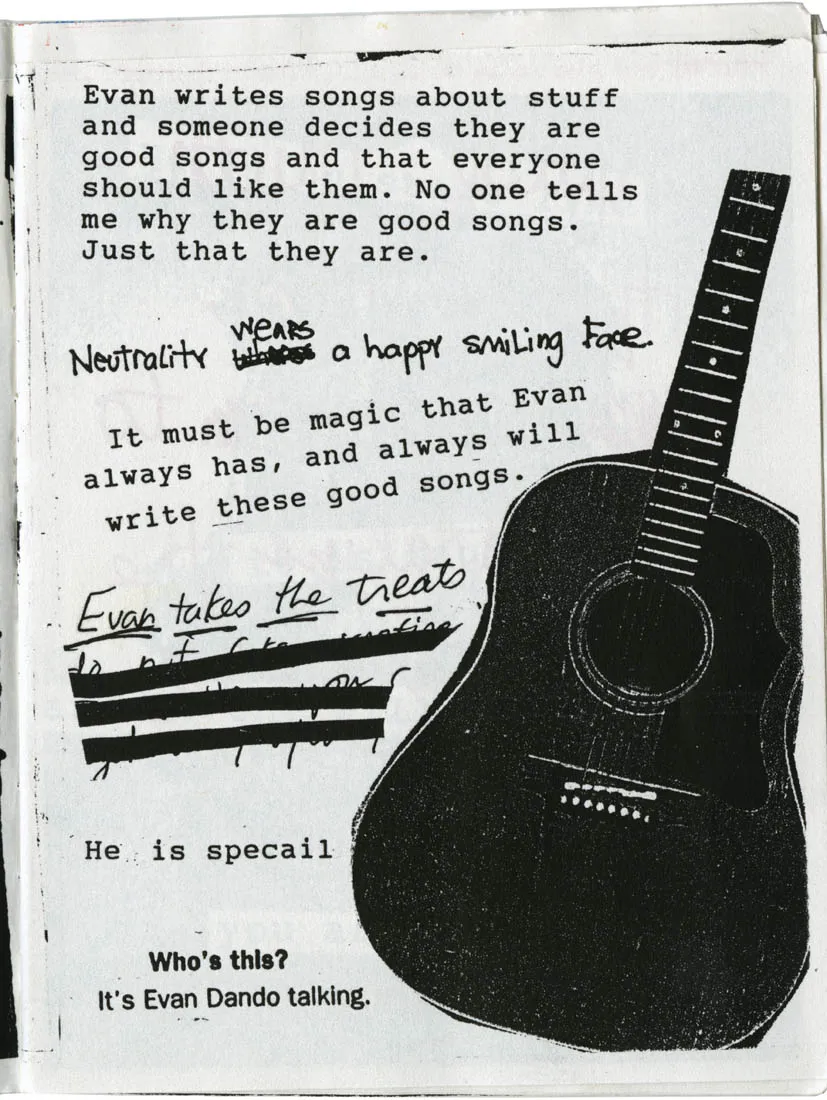 Evan writes songs about stuff
and someone decides they are
good songs and that everyone
should like them. No one tells
me why they are good songs.
Just that they are.
Neutrality wears a happy smiling Face.
It must be magic that Evan
always has, and always will
write these good songs.
Evan takes the treats
He is specail
Who's this?
It's Evan Dando talking.